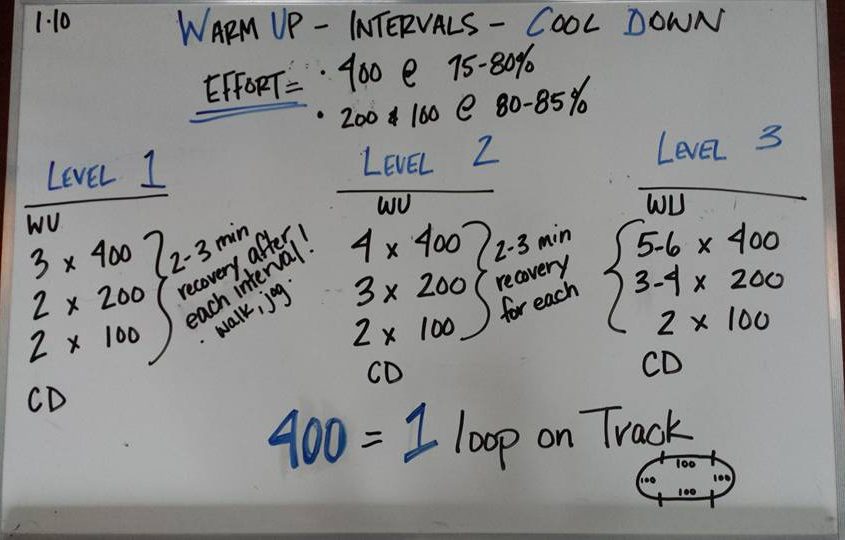 1-10
WARM UP - INTERVALS - COOL DOWN
EFFORT = • 400 @ 75-80%
• 200 & 100 @ 80-85%
LEVEL 1
WU
3 x 400
2 x 200
2 x 100
2-3 min
recovery after
each interval!
• walk, jog.
CD
LEVEL 2
WU
4 x 400
3 x 200
2 x 100
2-3 min
recovery
for each
CD
LEVEL 3
WU
5-6 x 400
3-4 x 200
2 x 100
CD
400 = 1 loop on Track
100
100 100
100